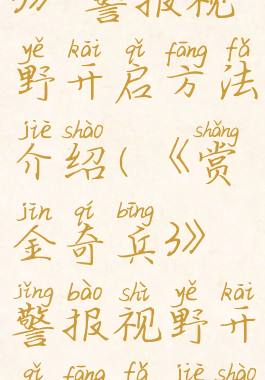 》》警报视
yě kāi qǐ fāng fǎ
野开启方法
jiè shào shǎng
介绍(《赏
jīn qí bīng
金奇兵3》
jǐng bào shì yě kāi
警报视野开
qǐ fāng fǎ jiè shào